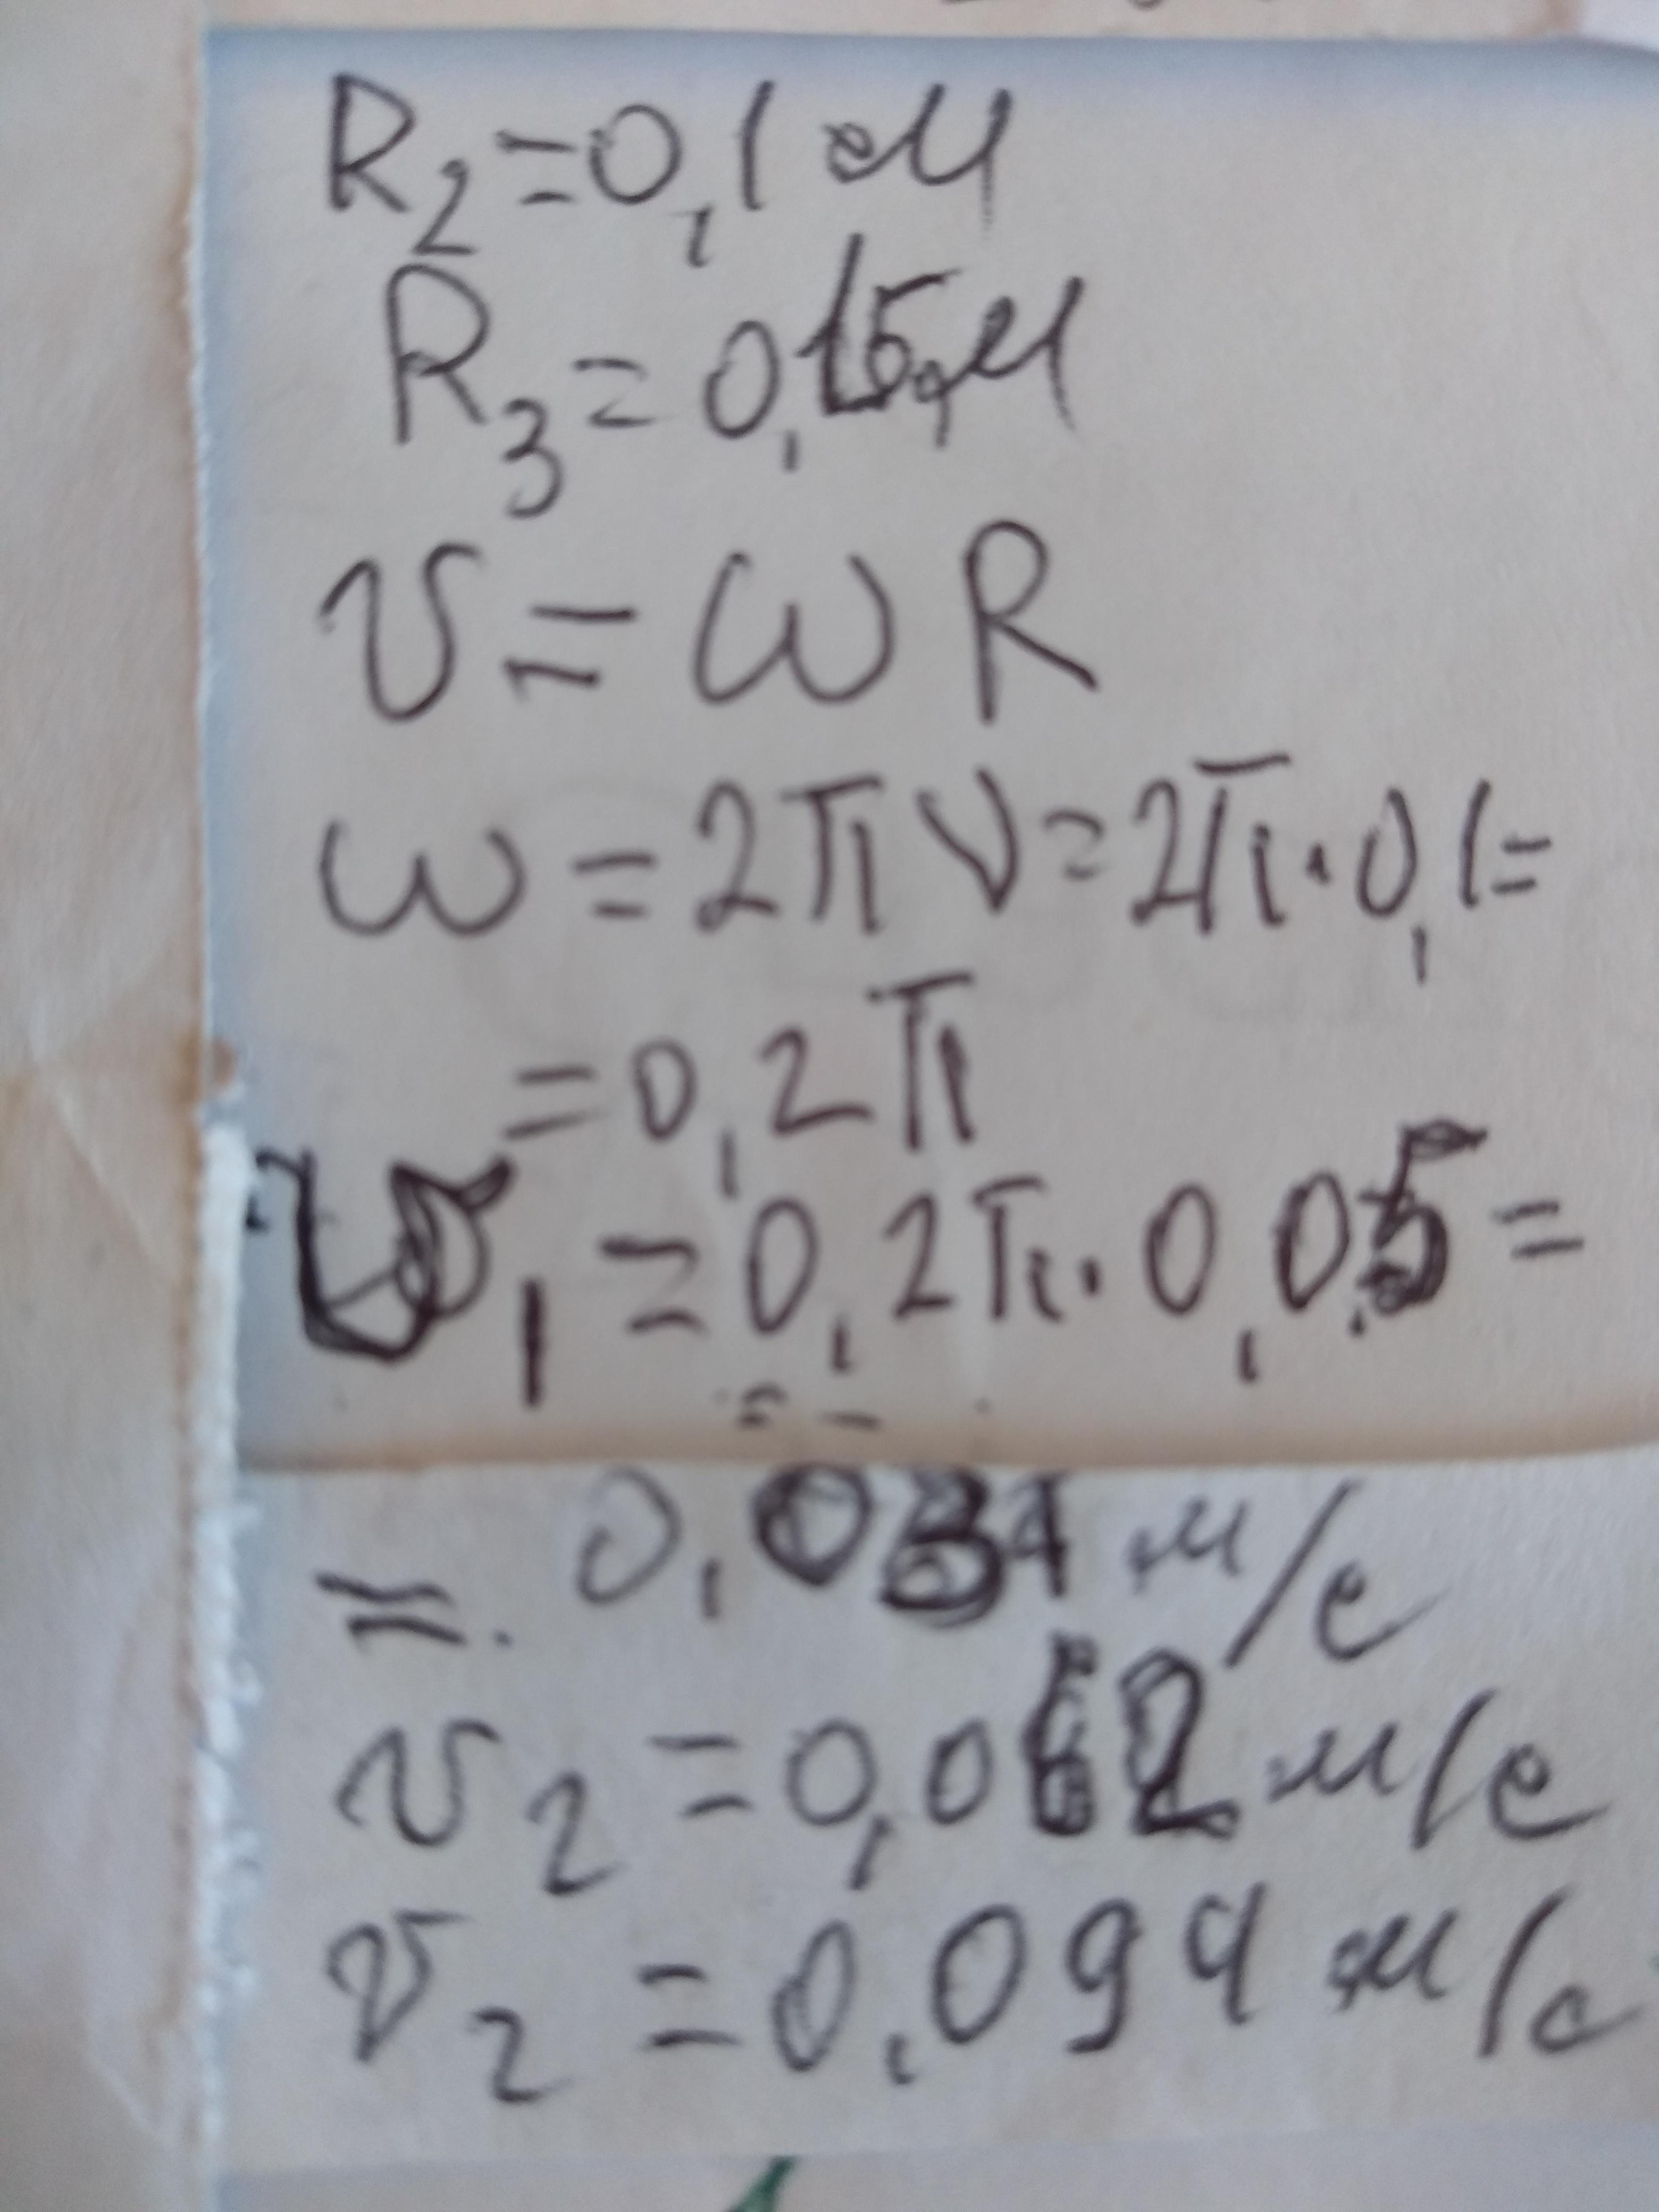 R₂=0,1 м
R₃=0,15м
v=ωR
ω=2πν=2π·0,1=
=0,2π
v₁=0,2π·0,05=
=0,031 м/с
v₂=0,062 м/с
v₂=0,094 м/с